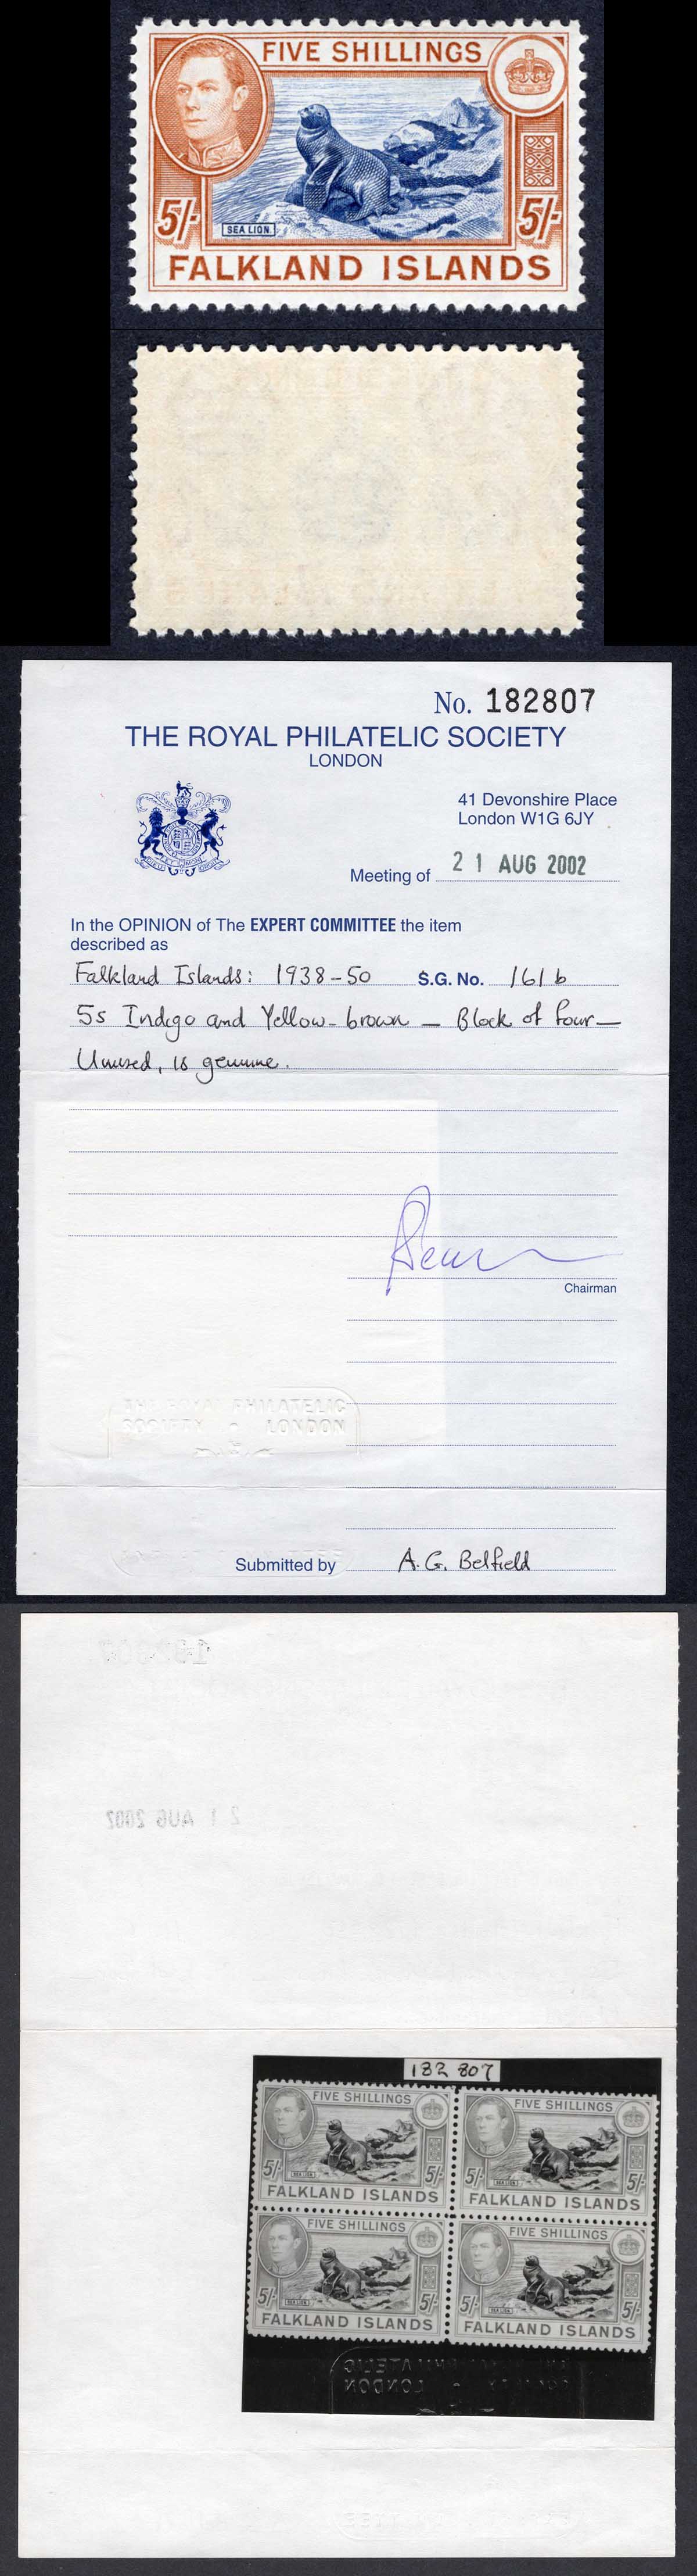 FIVE SHILLINGS
5/- 5/-
SEA LION.
FALKLAND ISLANDS
No. 182807
THE ROYAL PHILATELIC SOCIETY
LONDON
41 Devonshire Place
London W1G 6JY
Meeting of 21 AUG 2002
In the OPINION of The EXPERT COMMITTEE the item
described as
Falkland Islands: 1938-50 S.G. No. 161b
5s Indigo and Yellow-brown — Block of four —
Unused, is genuine.
Chairman
THE ROYAL PHILATELIC
SOCIETY LONDON
Submitted by A.G. Belfield
182807
21 AUG 2002
182 807
FIVE SHILLINGS FIVE SHILLINGS
5/- 5/- 5/- 5/-
SEA LION. SEA LION.
FALKLAND ISLANDS FALKLAND ISLANDS
FIVE SHILLINGS FIVE SHILLINGS
5/- 5/- 5/- 5/-
SEA LION. SEA LION.
FALKLAND ISLANDS FALKLAND ISLANDS
PHILATELIC
LONDON